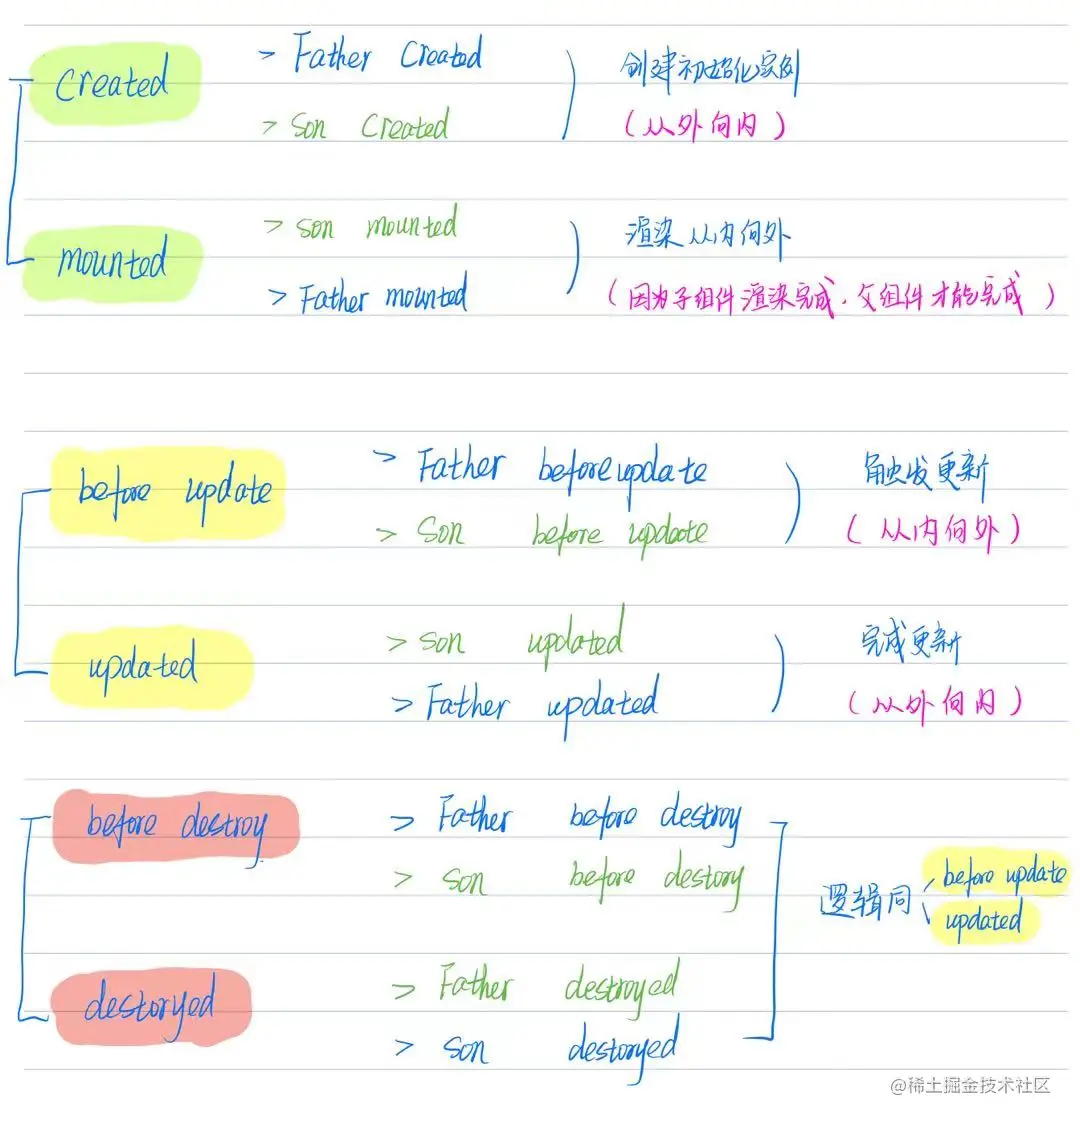 created
> Father Created
> Son Created
创建初始化实例
(从外向内)
mounted
> son mounted
> Father mounted
渲染从内向外
(因为子组件渲染完成,父组件才能完成)
before update
> Father beforeupdate
> son before update
触发更新
(从内向外)
updated
> son updated
> Father updated
完成更新
(从外向内)
before destroy
> Father before destroy
> son before destory
destoryed
> Father destroyed
> son destoryed
逻辑同
before update
updated
@稀土掘金技术社区